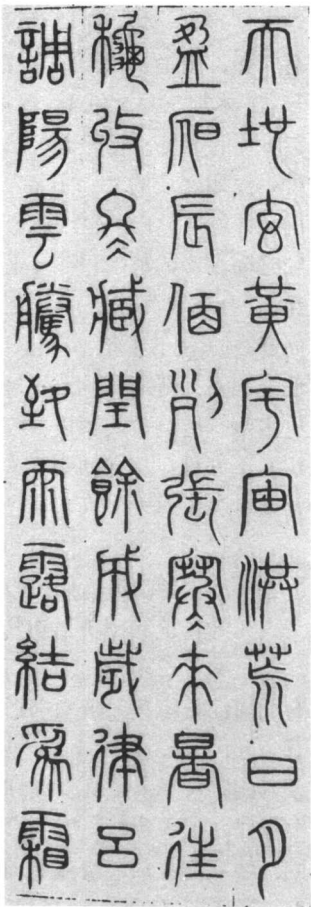 天地玄黃宇宙洪荒日月
盈昃辰宿列張寒來暑往
秋收冬藏閏餘成歲律呂
調陽雲騰致雨露結為霜